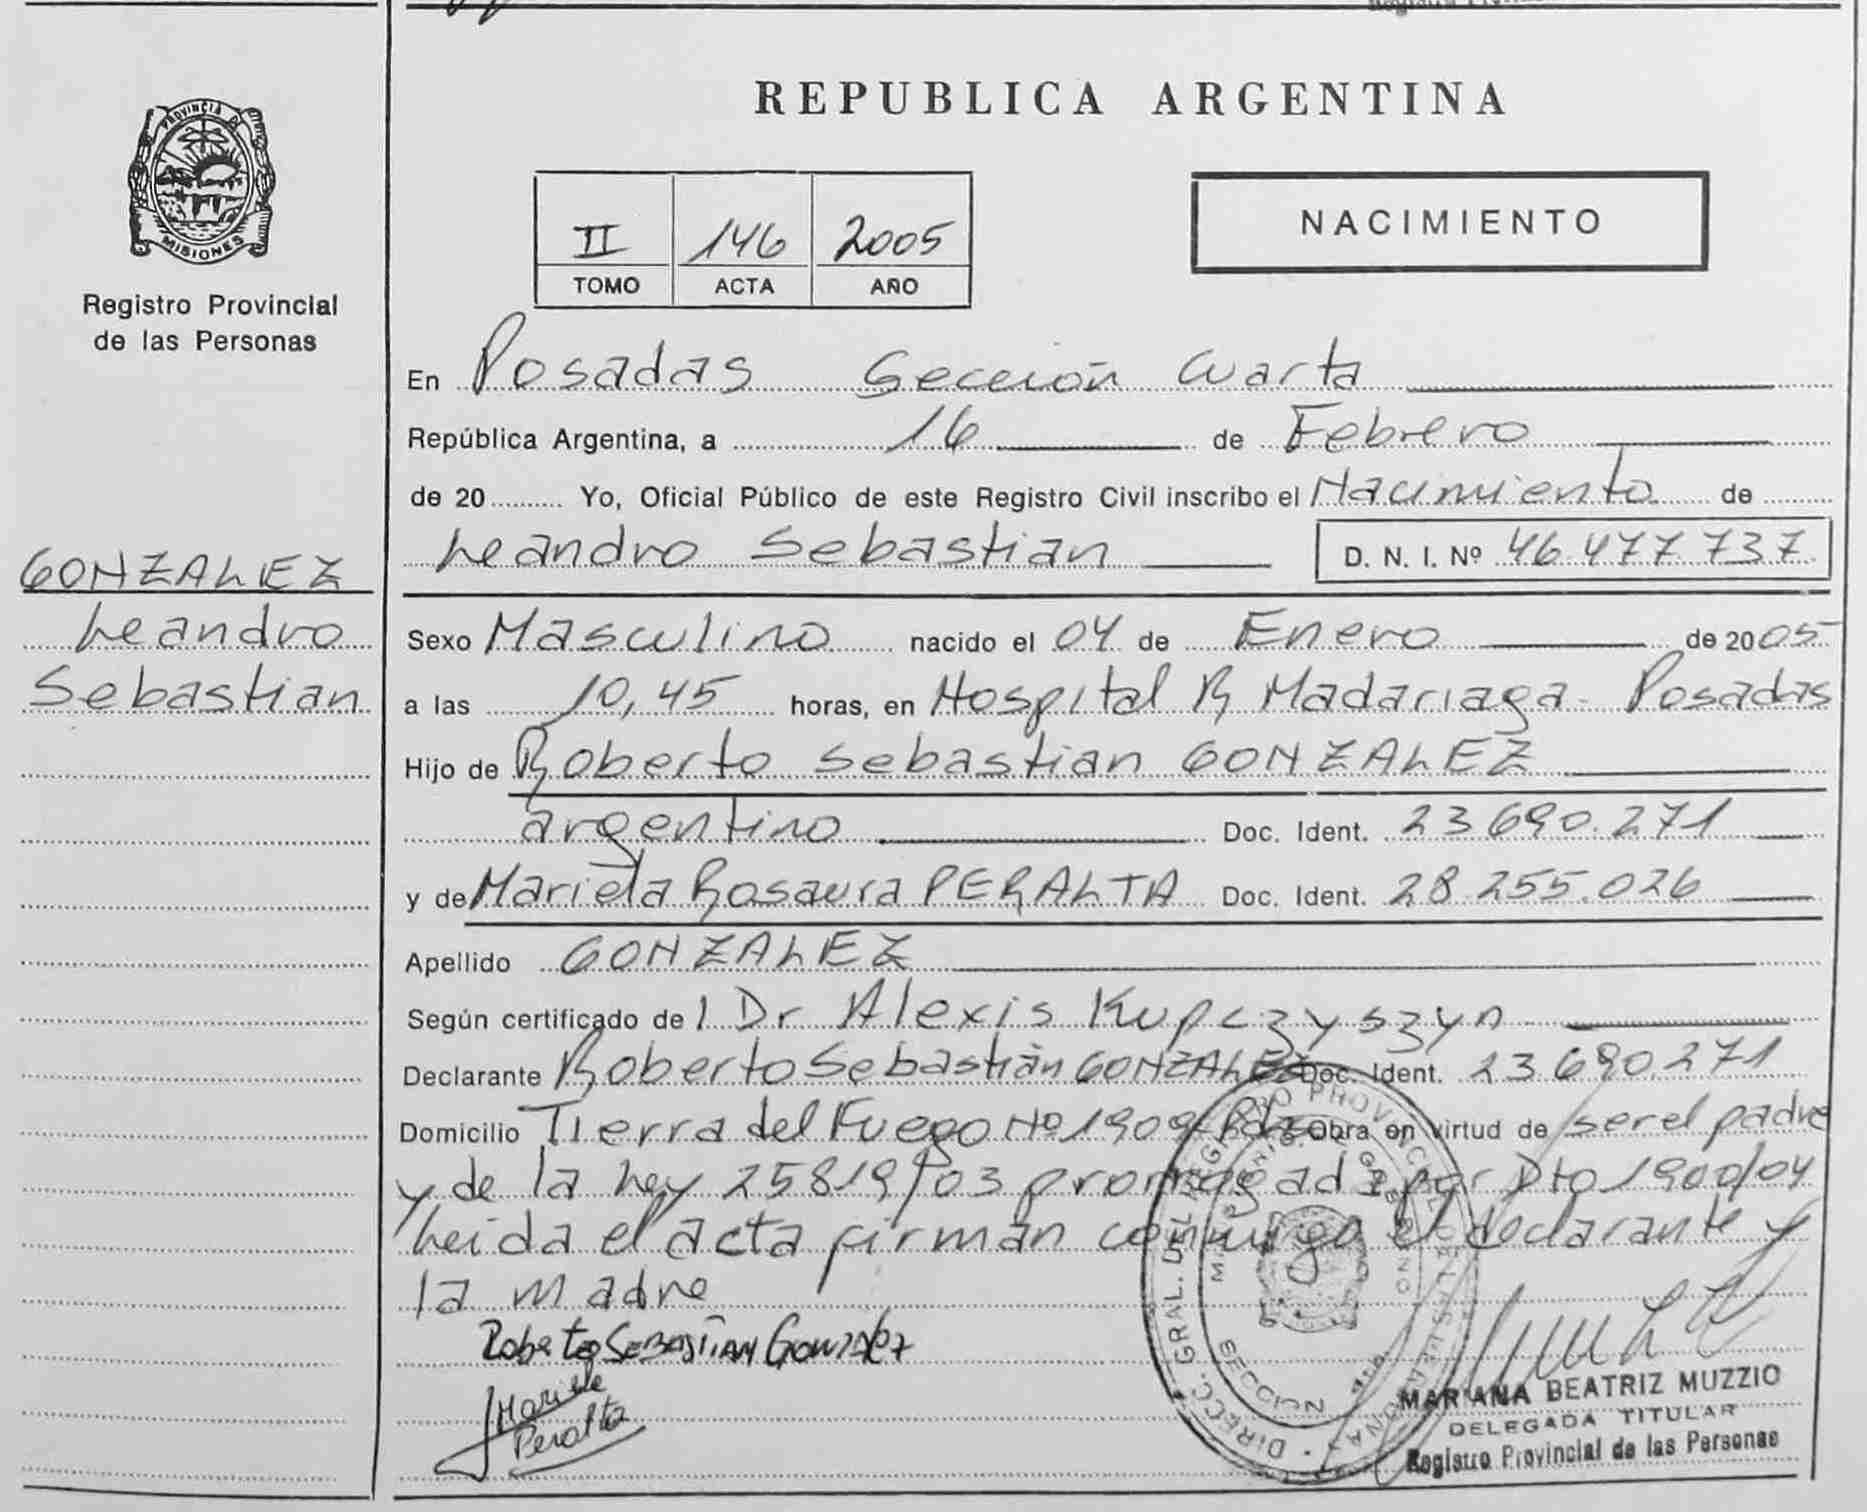 REPUBLICA ARGENTINA
PROVINCIA DE
MISIONES
Registro Provincial
de las Personas
II 146 2005
TOMO ACTA AÑO
NACIMIENTO
En Posadas Sección Cuarta
República Argentina, a 16 de Febrero
de 20 Yo, Oficial Público de este Registro Civil inscribo el Nacimiento de
Leandro Sebastian D. N. I. Nº 46.477.737
GONZALEZ
Leandro
Sebastian
Sexo Masculino nacido el 04 de Enero de 2005
a las 10,45 horas, en Hospital R Madariaga - Posadas
Hijo de Roberto Sebastian GONZALEZ
argentino Doc. Ident. 23690.271
y de Mariela Rosaura PERALTA Doc. Ident. 28.255.026
Apellido GONZALEZ
Según certificado del Dr Alexis Kupczyszyn
Declarante Roberto Sebastián GONZALEZ Doc. Ident. 23.690.271
Domicilio Tierra del Fuego Nº 1909 Pdas Obra en virtud de ser el padre
y de la Ley 25819/03 promogada por Dto 1900/04
Leida el acta firman conmigo el declarante y
la madre
Roberto SEBASTIAN GONZALEZ
Mariela
Peralta
MARIANA BEATRIZ MUZZIO
DELEGADA TITULAR
Registro Provincial de las Personas